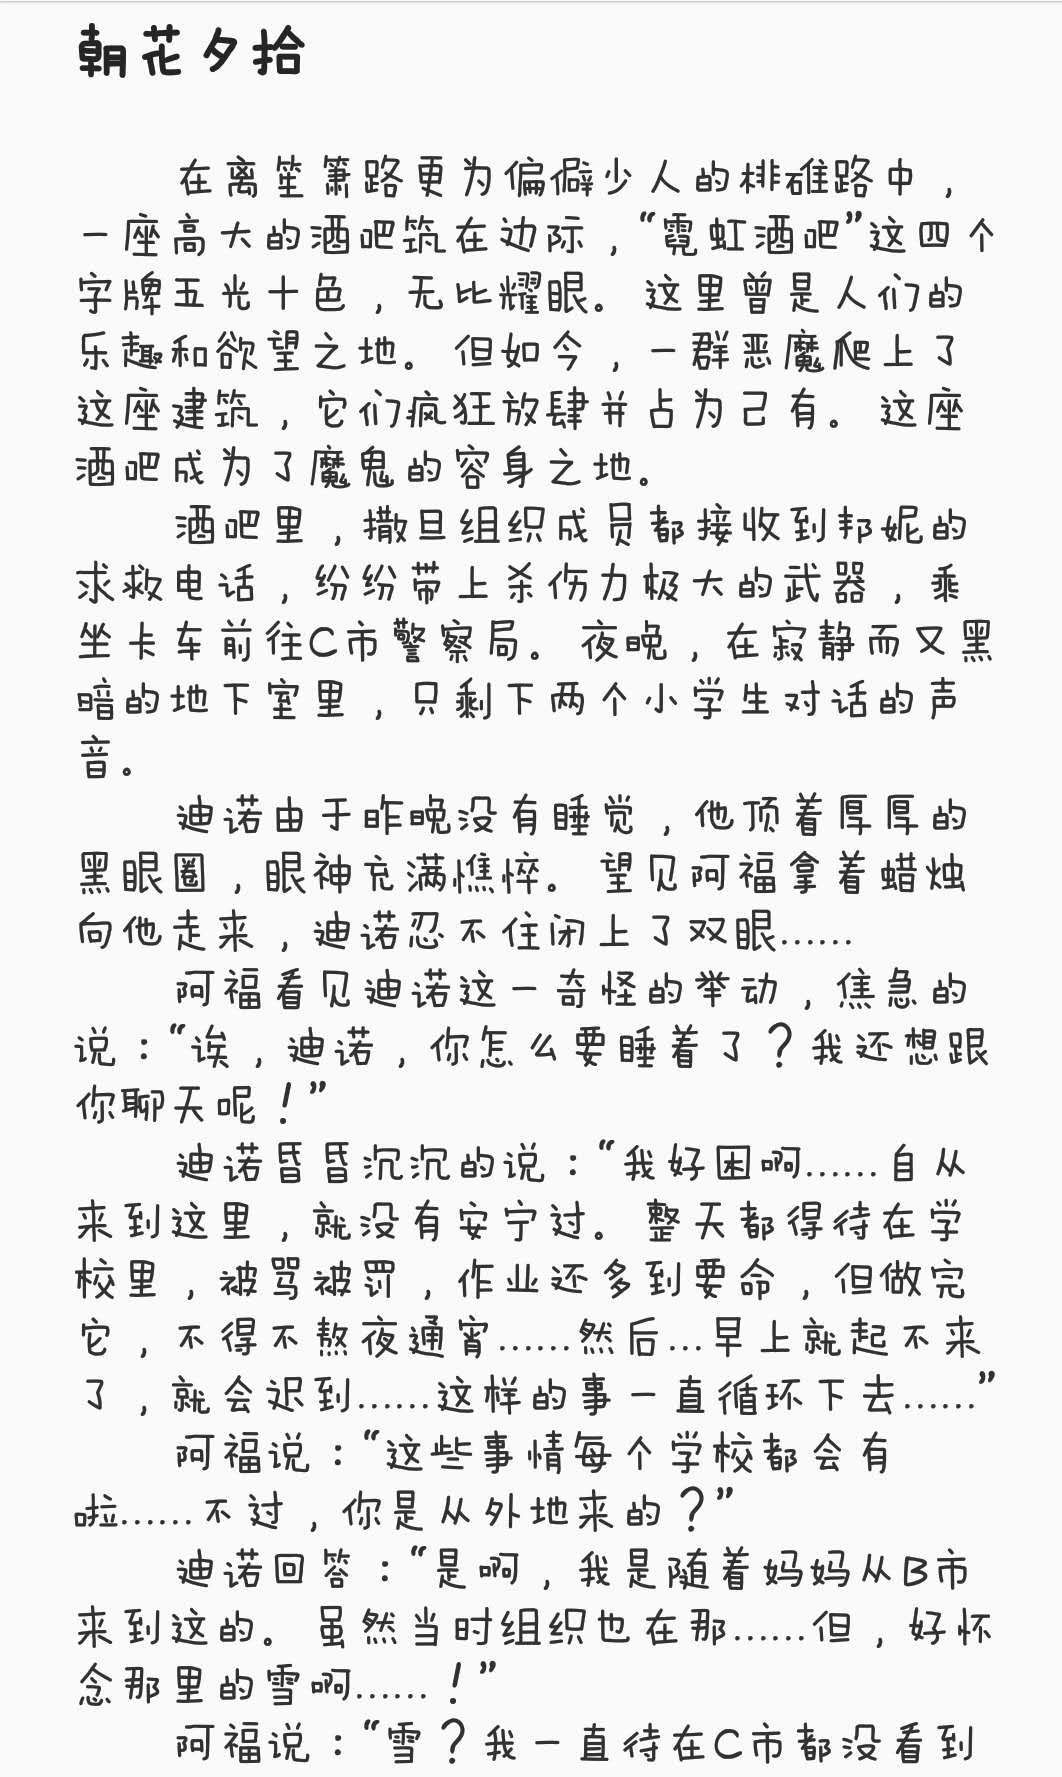 朝花夕拾
在离笙箫路更为偏僻少人的排碓路中，
一座高大的酒吧筑在边际，“霓虹酒吧”这四个
字牌五光十色，无比耀眼。这里曾是人们的
乐趣和欲望之地。但如今，一群恶魔爬上了
这座建筑，它们疯狂放肆并占为己有。这座
酒吧成为了魔鬼的容身之地。
酒吧里，撒旦组织成员都接收到邦妮的
求救电话，纷纷带上杀伤力极大的武器，乘
坐卡车前往C市警察局。夜晚，在寂静而又黑
暗的地下室里，只剩下两个小学生对话的声
音。
迪诺由于昨晚没有睡觉，他顶着厚厚的
黑眼圈，眼神充满憔悴。望见阿福拿着蜡烛
向他走来，迪诺忍不住闭上了双眼……
阿福看见迪诺这一奇怪的举动，焦急的
说：“诶，迪诺，你怎么要睡着了？我还想跟
你聊天呢！”
迪诺昏昏沉沉的说：“我好困啊……自从
来到这里，就没有安宁过。整天都得待在学
校里，被骂被罚，作业还多到要命，但做完
它，不得不熬夜通宵……然后…早上就起不来
了，就会迟到……这样的事一直循环下去……”
阿福说：“这些事情每个学校都会有
啦……不过，你是从外地来的？”
迪诺回答：“是啊，我是随着妈妈从B市
来到这的。虽然当时组织也在那……但，好怀
念那里的雪啊……！”
阿福说：“雪？我一直待在C市都没看到